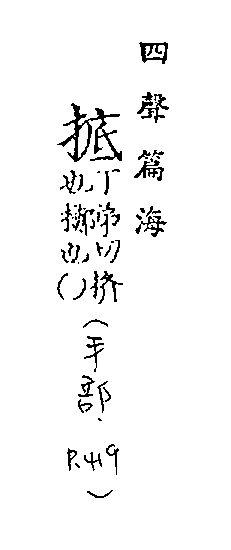 四聲篇海
掋
丁第切挤
也擲也( )
(手部.P.419)